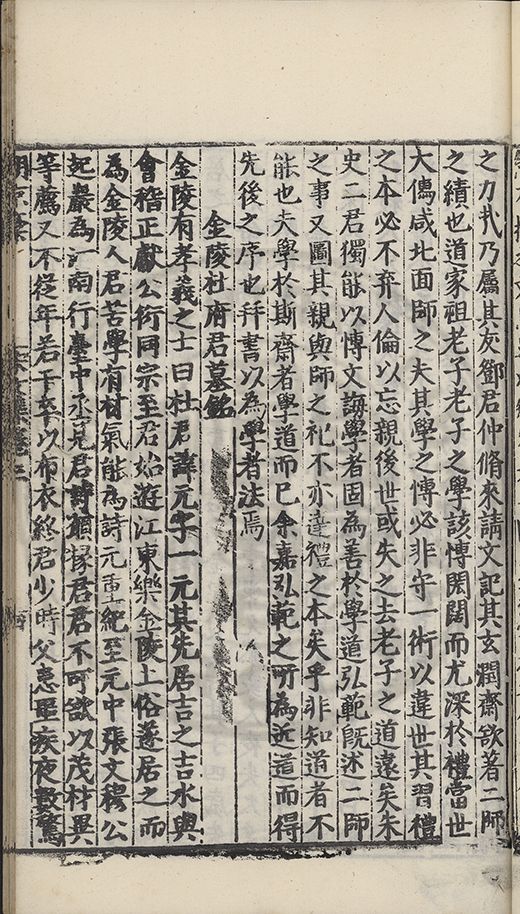 之力扵乃属其友鄧君仲脩來請文記其玄潤齋欲著二師
之績也道家祖老子老子之學該慱閎闊而尤深於禮當世
大儒咸北面師之夫其學之慱必非守一術以違世其習禮
之本必不弃人倫以忘親後世或失之去老子之道遠矣朱
史二君獨能以慱文誨學者固為善於學道弘範旣述二師
之事又圖其親與師之祀不亦達禮之本矣乎非知道者不
能也夫學於斯齋者學道而已余嘉弘範之所為近道而得
先後之序也拜書以為學者法焉
金陵杜府君墓銘
金陵有孝義之士曰杜君諱元字一元其先居吉之吉水與
會稽正獻公衍同宗至君始遊江東樂金陵土俗遂居之而
為金陵人君苦學有材氣能為詩元重紀至元中張文穆公
起巖為江南行臺中丞見君詩頋掾君君不可欲以茂材異
等薦又不從年若干卒以布衣終君少時父患風疾夜數驚